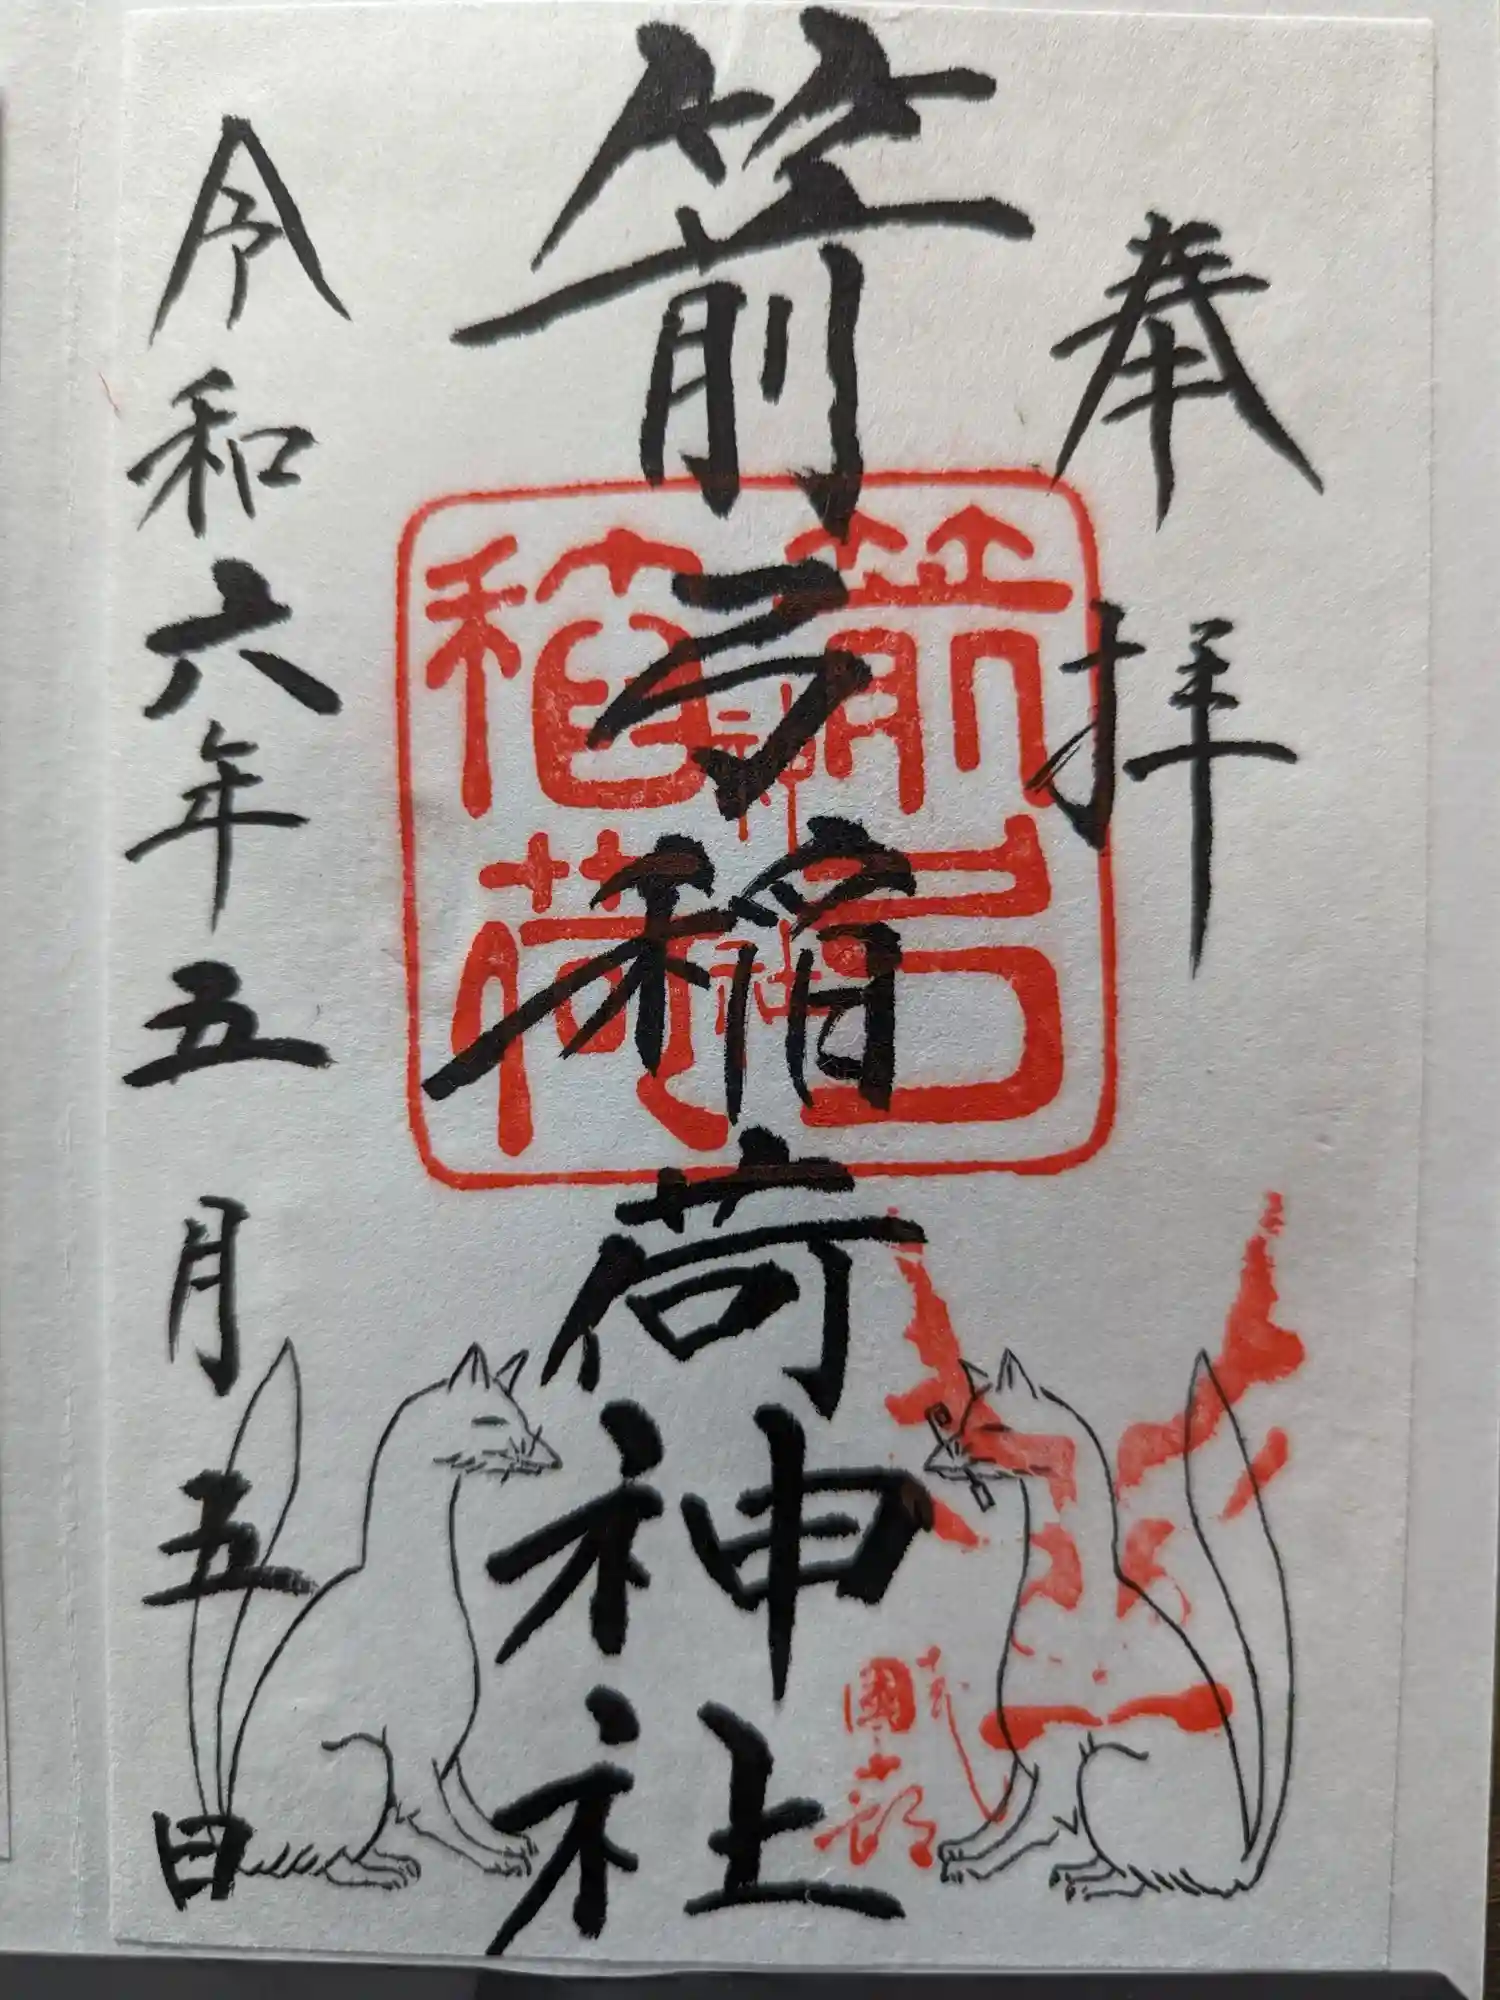 奉拝
箭弓稲荷神社
令和六年五月五日
箭弓
稲荷
神社